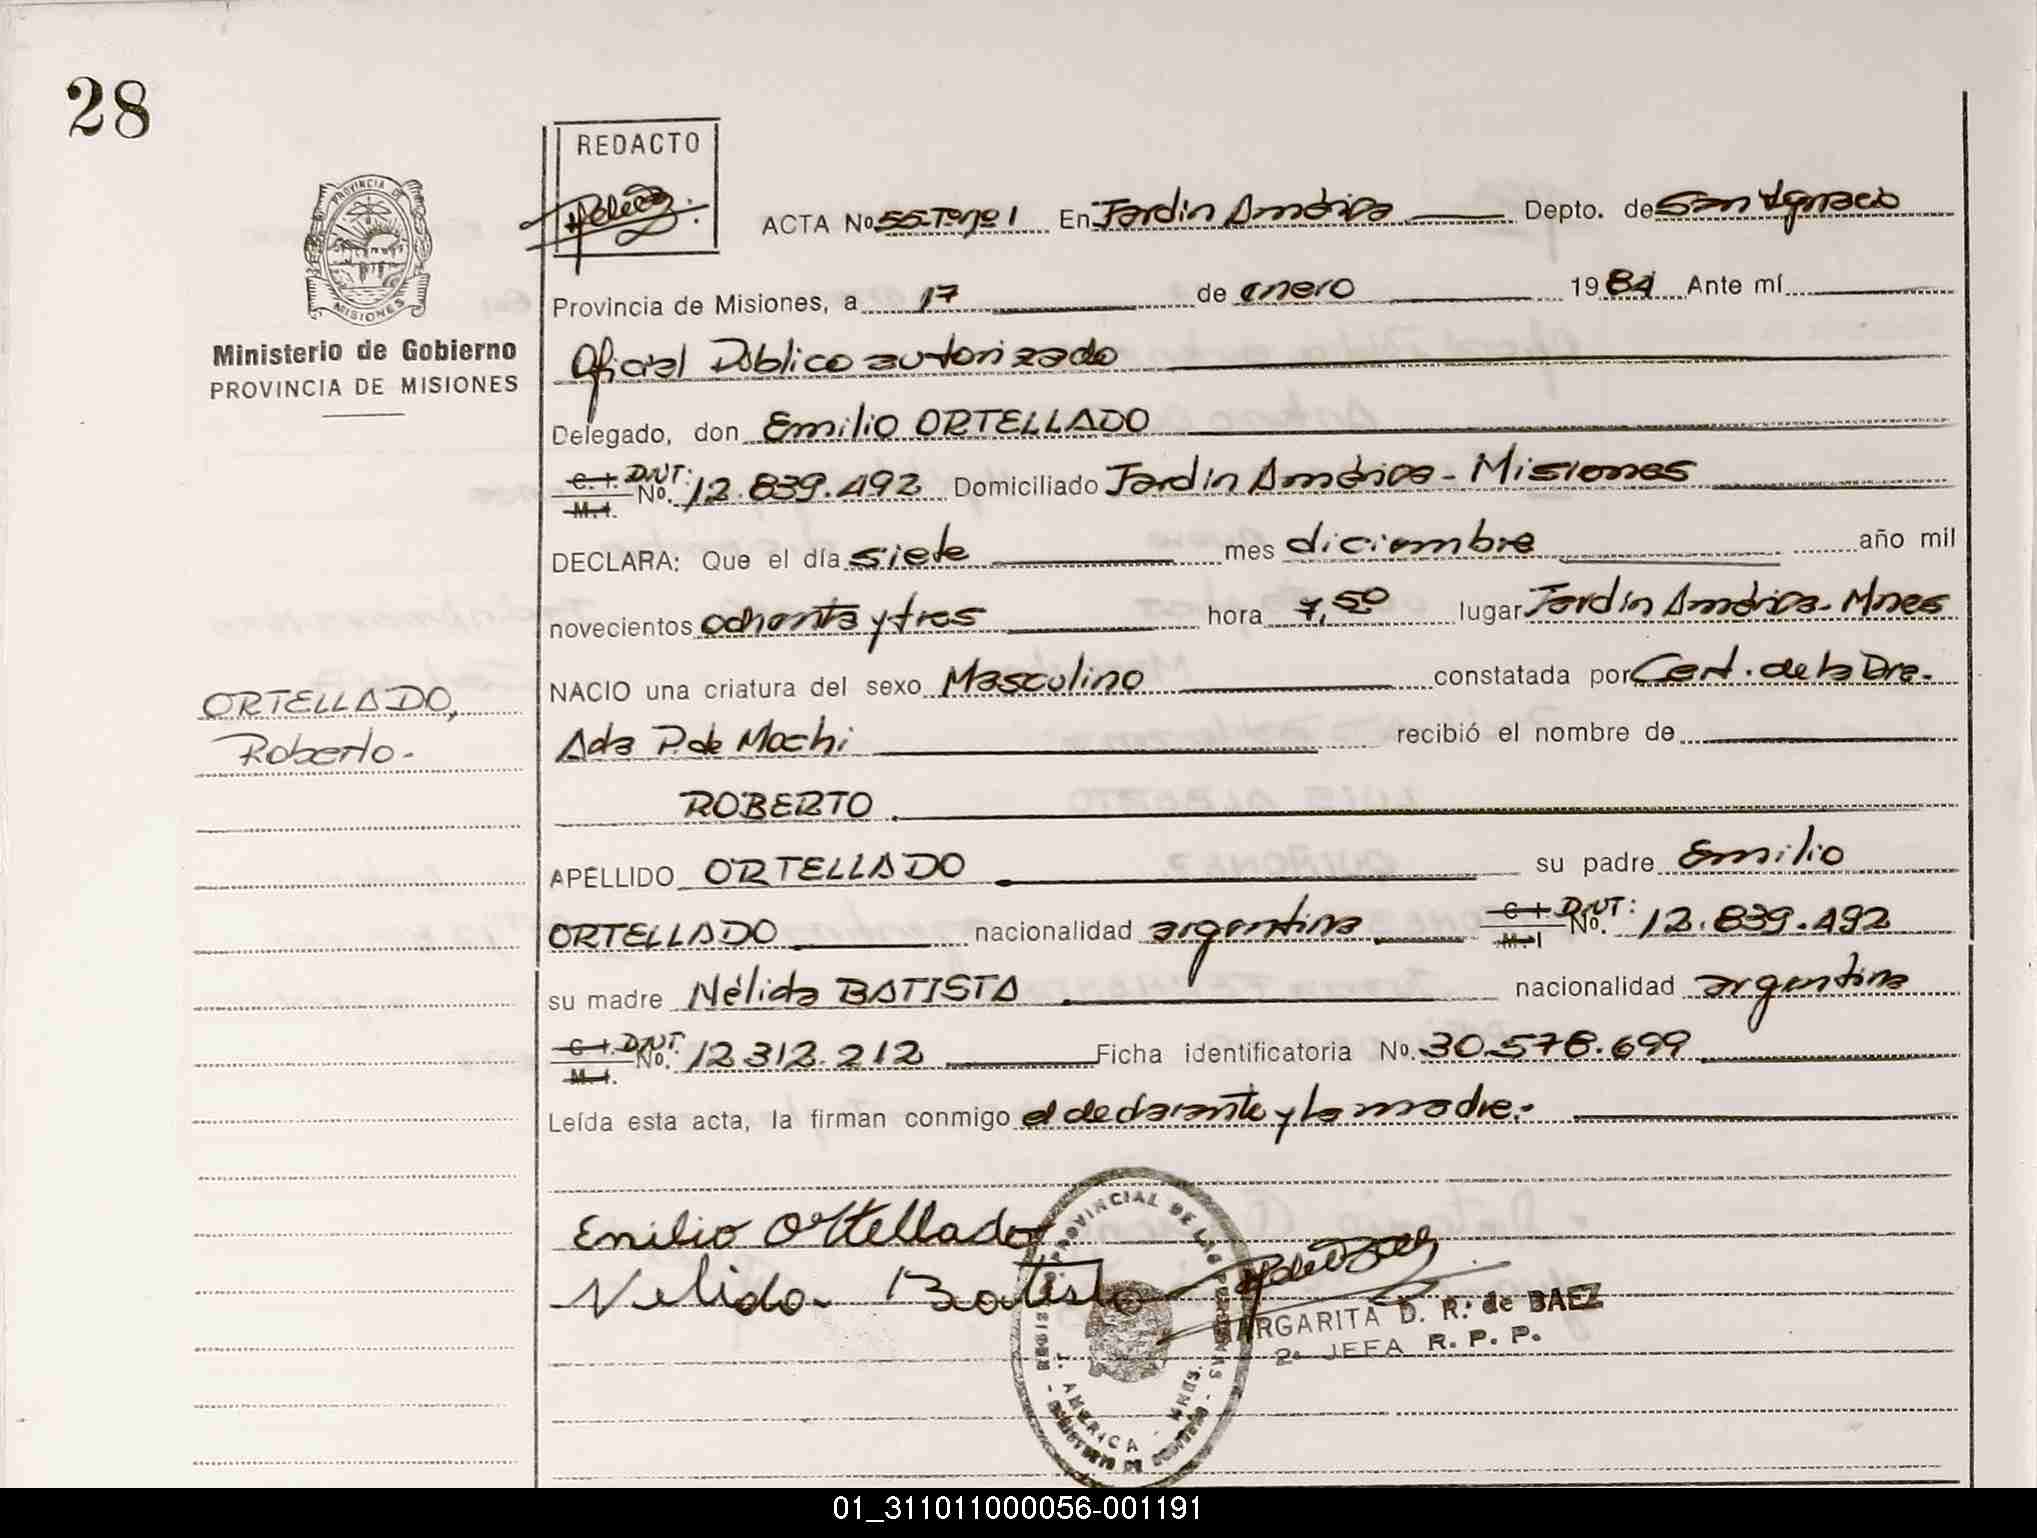 28
REDACTO
PROVINCIA DE
MISIONES
Ministerio de Gobierno
PROVINCIA DE MISIONES
ACTA No. 55-Tomo 1 En Jardín América Depto. de San Ignacio
Provincia de Misiones, a 17 de enero 1984 Ante mí
Oficial Público autorizado
Delegado, don Emilio ORTELLADO
C. I. M. I. D.N.I: No. 12.839.492 Domiciliado Jardín América - Misiones
DECLARA: Que el día siete mes diciembre año mil
novecientos ochenta y tres hora 7,50 lugar Jardín América - Mnes
NACIO una criatura del sexo Masculino constatada por Cert. de la Dra.
Ada P. de Mochi recibió el nombre de
ORTELLADO,
Roberto.-
ROBERTO
APELLIDO ORTELLADO su padre Emilio
ORTELLADO nacionalidad argentina C. I. M. I D.N.I: No. 12.839.492
su madre Nélida BATISTA nacionalidad argentina
C. I. M. I. D.N.I. No. 12.312.212 Ficha identificatoria No. 30.578.699
Leída esta acta, la firman conmigo el declarante y la madre.-
Emilio Ortellado
Nelida Batista
PROVINCIAL DE LAS PERSONAS
J. AMERICA - MNES.
MINISTERIO DE GOBIERNO
MARGARITA D. R. de BAEZ
2a JEFA R. P. P.
01_311011000056-001191